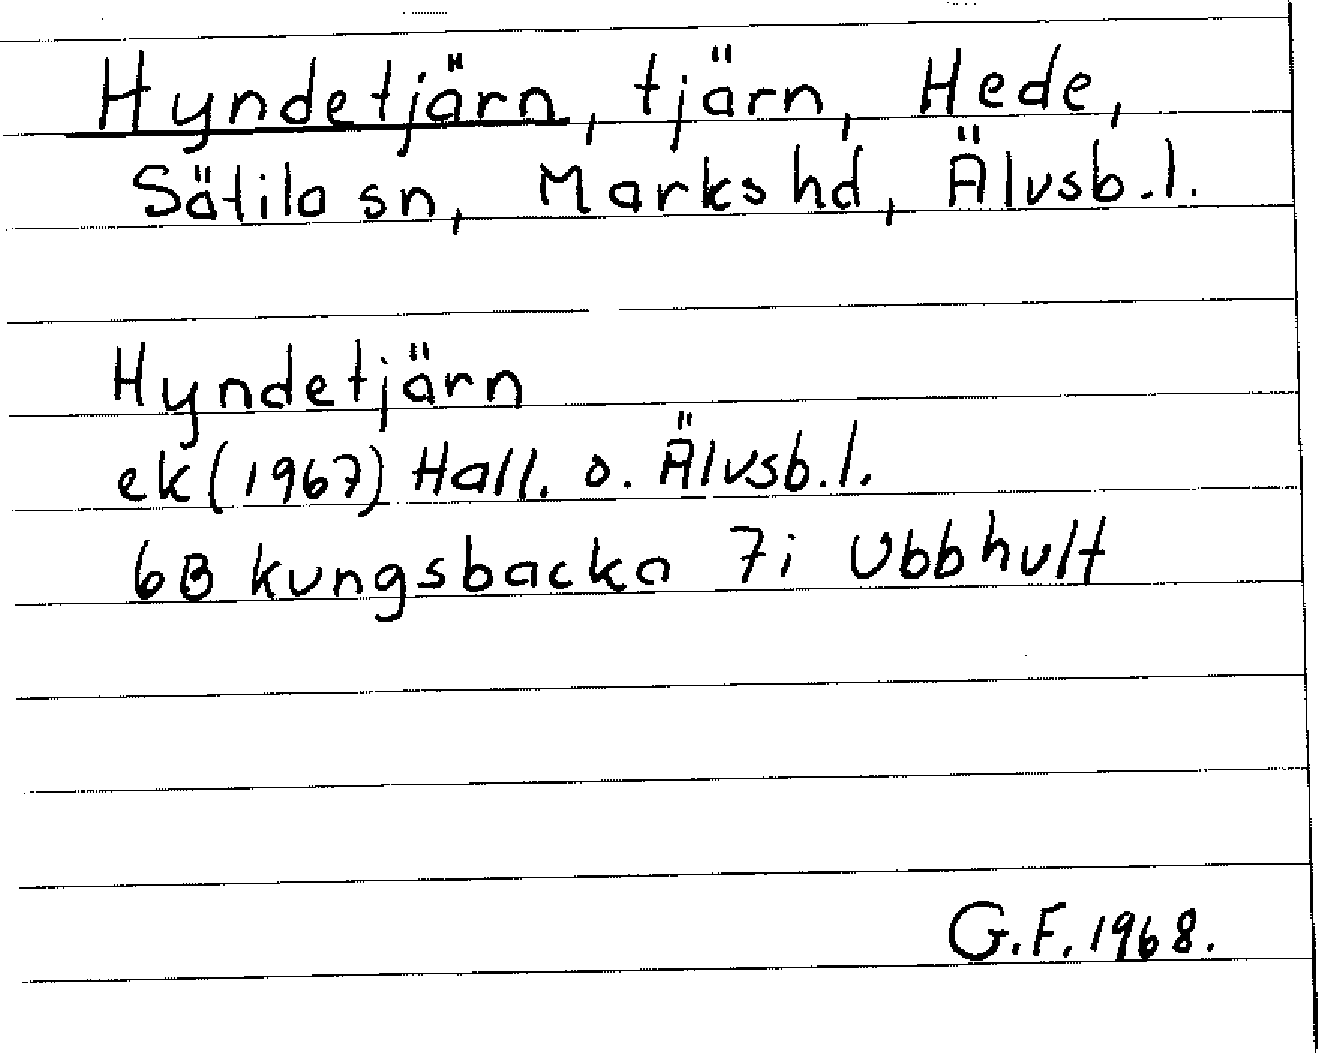 Hyndetjärn, tjärn, Hede,
Sätila sn, Marks hd, Älvsb.l.
Hyndetjärn
ek (1967) Hall. o. Älvsb.l.
6B kungsbacka 7i Ubbhult
G.F. 1968.